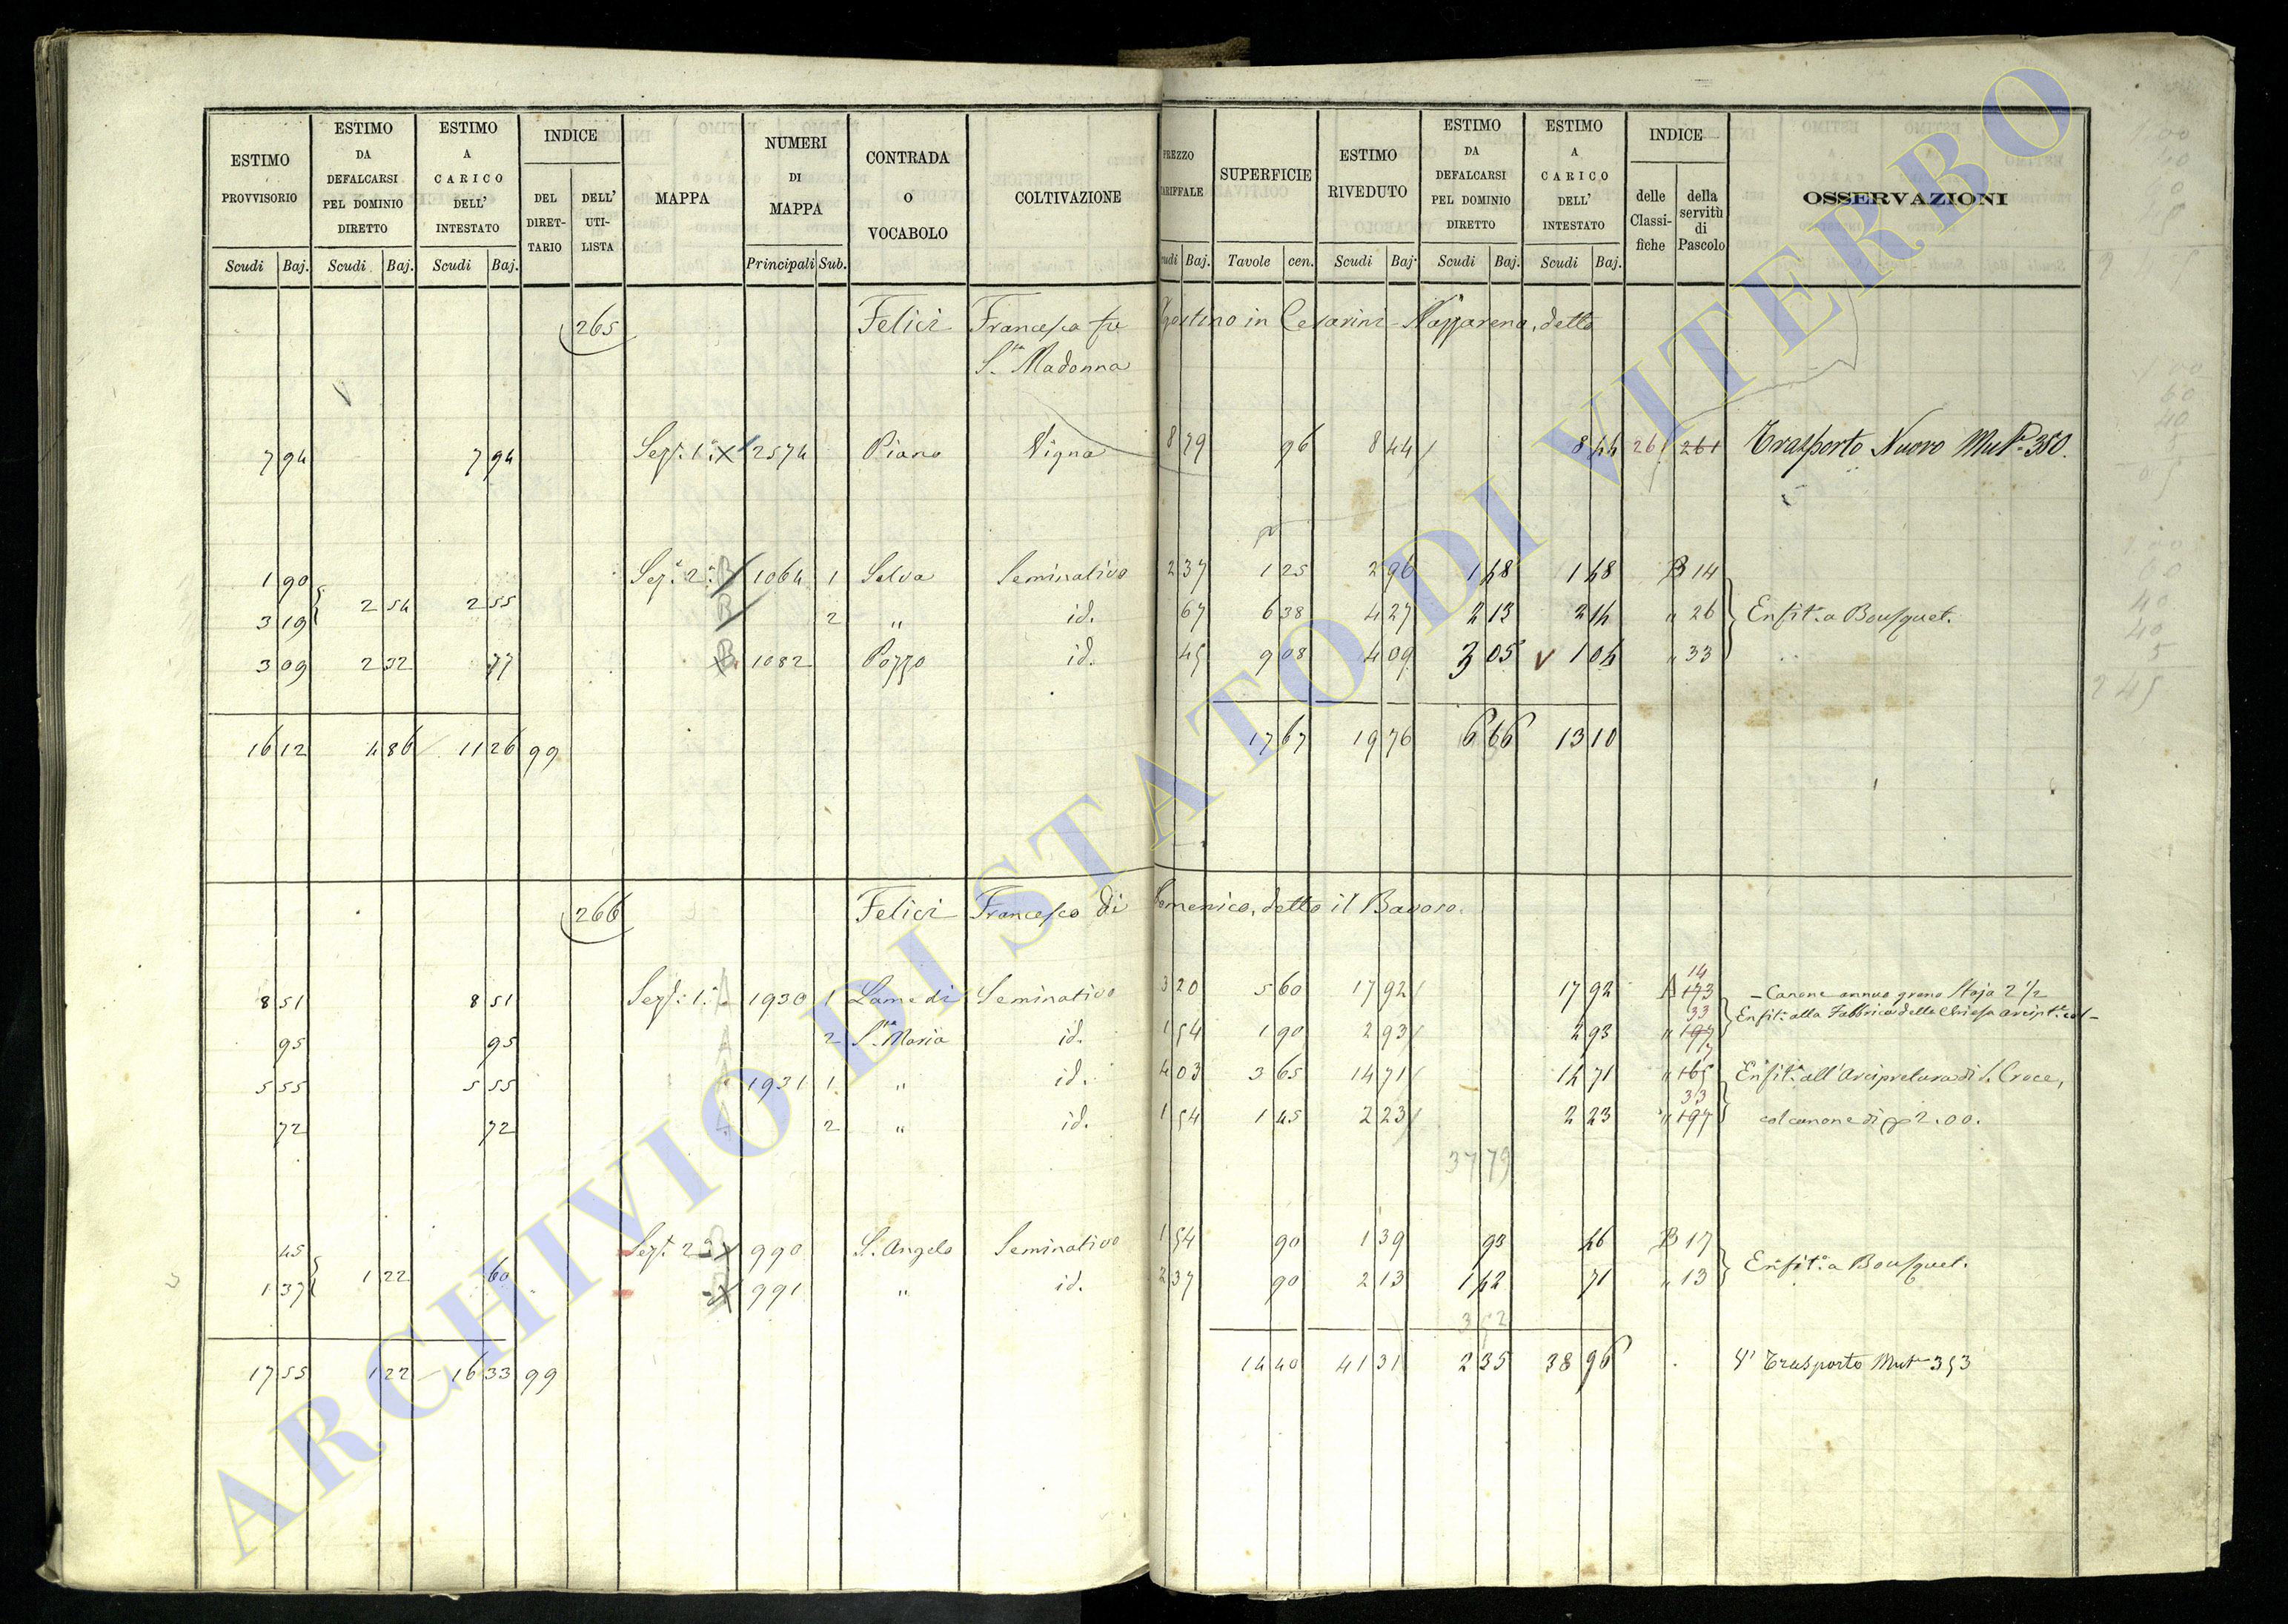 ESTIMO PROVVISORIO | ESTIMO DA DEFALCARSI PEL DOMINIO DIRETTO | ESTIMO A CARICO DELL' INTESTATO | INDICE DEL DIRETTARIO | DELL' UTILISTA | MAPPA | NUMERI DI MAPPA | CONTRADA O VOCABOLO | COLTIVAZIONE | PREZZO TARIFFALE | SUPERFICIE | ESTIMO RIVEDUTO | ESTIMO DA DEFALCARSI PEL DOMINIO DIRETTO | ESTIMO A CARICO DELL' INTESTATO | INDICE delle Classifiche | della servitù di Pascolo | OSSERVAZIONI
Scudi Baj. Scudi Baj. Scudi Baj. Principali Sub. Scudi Baj. Tavole cen. Scudi Baj. Scudi Baj. Scudi Baj.
265 Felici Francesca fu Agostino in Cesarini - Nazzarena, detto
S.ta Madonna
7 94 7 94 Sez.e 1.a X 2574 Piano Vigna 8 79 96 8 44 8 44 261 261 Trasporto Nuovo Mut.e 350.
1 90 Sez.e 2.a B 1064 1 Selva Seminativo 2 37 1 25 2 96 1 48 1 48 B 14
2 54 2 55
3 19 B 2 " id. 67 6 38 4 27 2 13 2 14 " 26 Enfit.a a Bousquet.
3 09 2 32 77 B 1082 Pozzo id. 45 9 08 4 09 3 05 1 04 " 33
16 12 4 86 11 26 99 17 67 19 76 6 66 13 10
266 Felici Francesco di Domenico, detto il Bavoso.
8 51 8 51 Sez.e 1.a A 1930 1 Lame di Seminativo 3 20 5 60 17 92 17 92 14 A 173 - Canone annuo grano Staja 2 1/2
95 95 A 2 S.ta Maria id. 1 54 1 90 2 93 2 93 33 " 197 Enfit.a alla Fabbrica della Chiesa
5 55 5 55 A 1931 1 " id. 4 03 3 65 14 71 14 71 " 165 Enfit.a all'Arcipretura di S. Croce,
72 72 A 2 " id. 1 54 1 45 2 23 2 23 33 " 197 col canone di 2.00.
37 79
45 Sez.e 2.a X 990 S. Angelo Seminativo 1 54 90 1 39 93 46 B 17
1 22 60 Enfit.a a Bousquet.
1 37 X 991 " id. 2 37 90 2 13 1 42 71 " 13
3 52
17 55 1 22 16 33 99 14 40 41 31 2 35 38 96 Trasporto Mut.e 353
ARCHIVIO DI STATO DI VITERBO